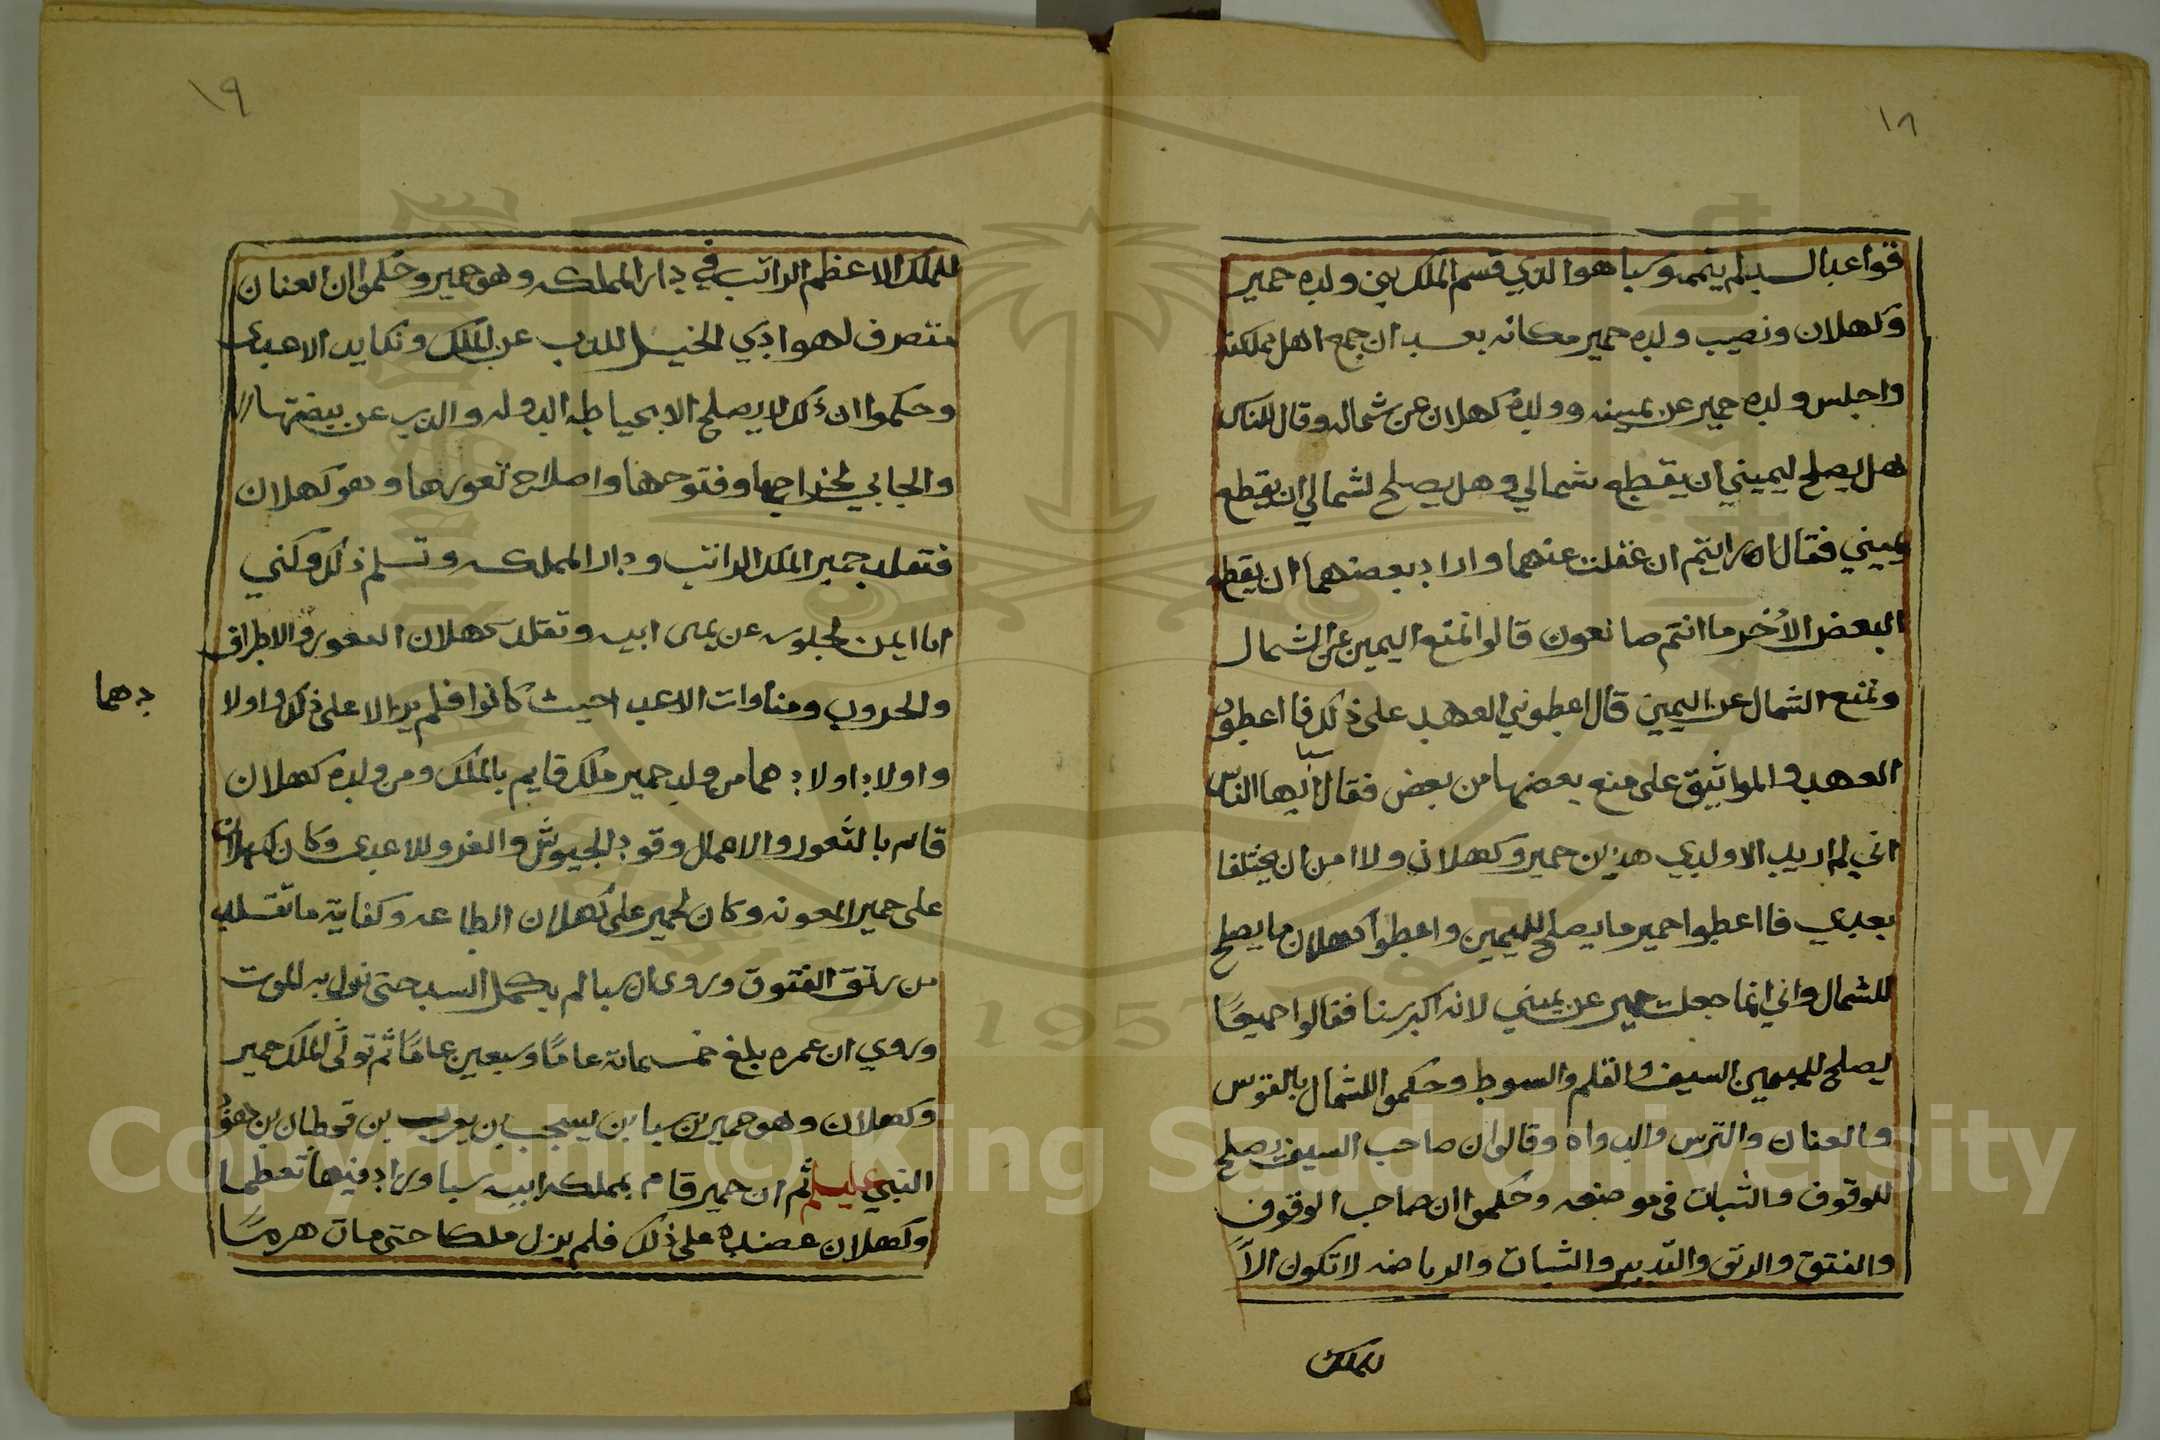 ١٨
قواعد السد لم يتممه وسبا هو الذي قسم الملك بين ولده حمير
وكهلان ونصيب ولده حمير مكانه بعد ان جمع اهل مملكته
واجلس ولده حمير عن يمينه وولده كهلان عن شماله وقال للناس
هل يصلح ليميني ان يقطع شمالي وهل يصلح لشمالي ان يقطع
يميني فقال ارايتم ان غفلت عنهما واراد بعضهما ان يقطع
البعض الاخر ما انتم صانعون قالوا نمنع اليمين عن الشمال
ونمنع الشمال عن اليمين قال اعطوني العهد على ذلك فا اعطوه
العهد والمواثيق على منع بعضها من بعض فقال سبا ايها الناس
اني لم اريد الا ولدي هذين حمير وكهلان ولا امن ان يختلفا
بعدي فا اعطوا حمير ما يصلح لليمين واعطوا كهلان ما يصلح
للشمال واني انما جعلت حمير عن يميني لانه اكبر سنا فقالوا جميعًا
يصلح لليمين السيف والقلم والسوط وحكموا للشمال بالقوس
والعنان والترس والدواه وقالوا ان صاحب السيف يصلح
للوقوف والثبات في موضعه وحكموا ان صاحب الوقوف
والفتق والرتق والتدبير والثبات والرياضه لا تكون الا
للملك
١٩
للملك الاعظم الراتب في دار المملكه وهو حمير وحكموا ان العنان
تتصرف لهوادي الخيل للذب عن الملك ونكايد الاعداء
وحكموا ان ذلك لا يصلح الا بحياطه الدوله والذب عن بيضتها
والجابي لخراجها وفتوحها واصلاح ثغورها وهو كهلان
فتقلد حمير الملك الراتب ودار المملكه وتسلم ذلك وكني
ابا ايمن لجلوسه عن يمين ابيه وتقلد كهلان الثغور والاطراف
والحروب ومناوات الاعدا حيث كانوا فلم يزالا على ذلك واولا
دهما
واولاد اولادهما من ولد حمير ملك قايم بالملك ومن ولده كهلان
قام بالثغور والاعمال وقود الجيوش والغزو للاعدى وكان لكهلان
على حمير المعونه وكان لحمير على كهلان الطاعه وكفاية ما تقلد
من رتق الفتوق وروى ان سبا لم يكمل السد حتى نزل به الموت
وروي ان عمره بلغ خمسمائة عامًا وسبعين عامًا ثم تولى الملك حمير
وكهلان وهو حمير بن سبا بن يسجب بن يعرب بن قحطان بن هود
النبي عليلم ثم ان حمير قام بمملكة ابيه سبا وزاد فيها تعظيما
وكهلان عضده على ذلك فلم يزل ملكا حتى مات هرمًا
1957
Copyright © King Saud University